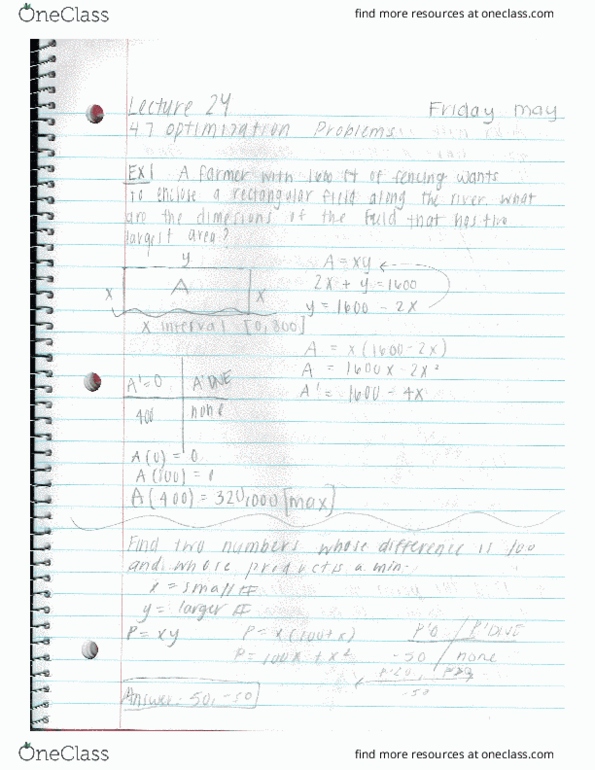 OneClass
find more resources at oneclass.com
Lecture 24
Friday may
4.7 Optimization Problems
EX1 A farmer with 1600 ft of fencing wants
to enclose a rectangular field along the river. What
are the dimesions of the field that has the
largest area?
y
A = xy
x A x
2x + y = 1600
y = 1600 - 2x
x interval [0,800]
A = x(1600-2x)
A = 1600x - 2x²
A' = 1600 - 4x
A'=0 A'DNE
400 none
A(0) = 0
A(400) = 320,000 [max]
Find two numbers whose difference is 100
and whose product is a min.
x = small #
y = larger #
P = xy P = x(100+x) P'0 P'DNE
P = 100x + x² -50 none
-50
Answer: 50, -50
OneClass
find more resources at oneclass.com